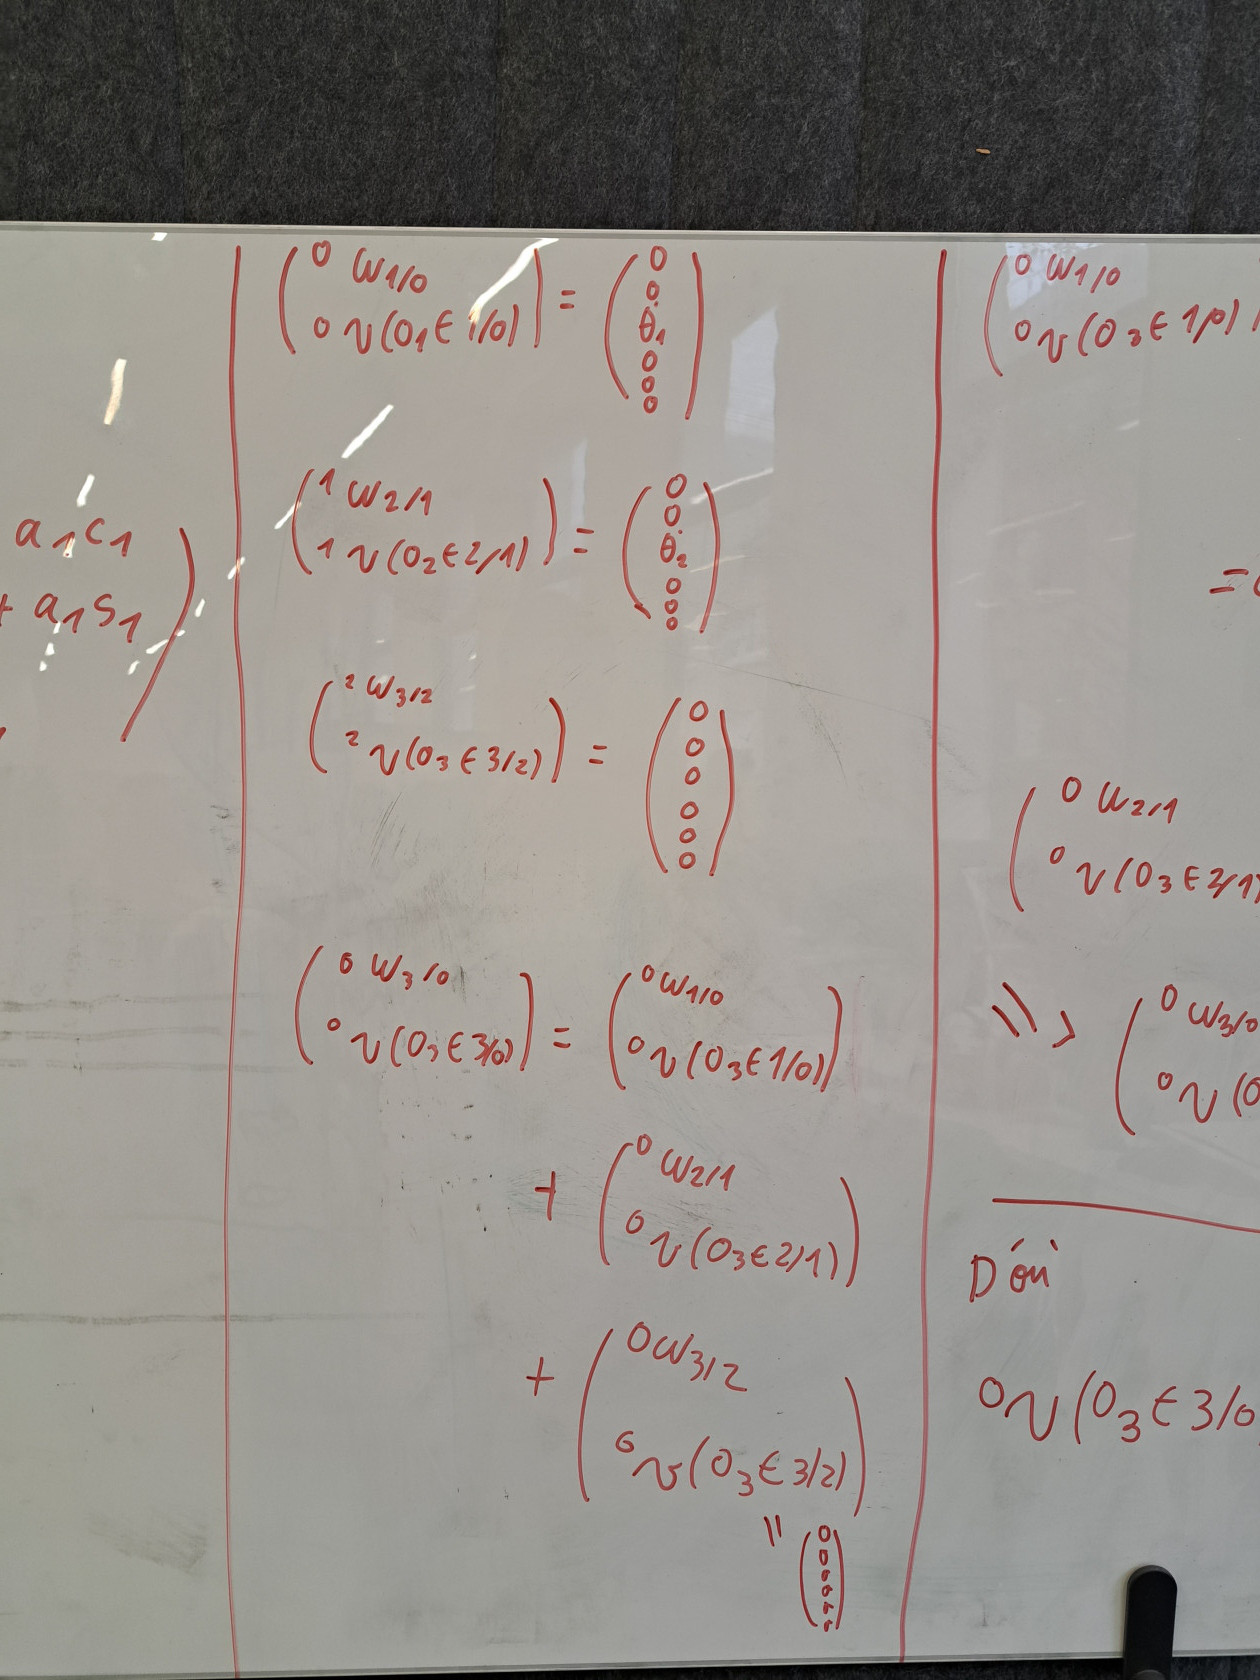 a₁c₁
+ a₁s₁
⁰ω₁/₀
⁰v(O₁∈1/0) =
0
0
θ̇₁
0
0
0
¹ω₂/₁
¹v(O₂∈2/1) =
0
0
θ̇₂
0
0
0
²ω₃/₂
²v(O₃∈3/2) =
0
0
0
0
0
0
⁰ω₃/₀ ⁰ω₁/₀
⁰v(O₃∈3/0) = ⁰v(O₃∈1/0)
+ ⁰ω₂/₁
⁰v(O₃∈2/1)
+ ⁰ω₃/₂
⁰v(O₃∈3/2)
=
0
0
0
0
0
0
⁰ω₁/₀
⁰v(O₃∈1/0)
=
⁰ω₂/₁
⁰v(O₃∈2/1)
=> ⁰ω₃/₀
⁰v(O
D'où
⁰v(O₃∈3/0